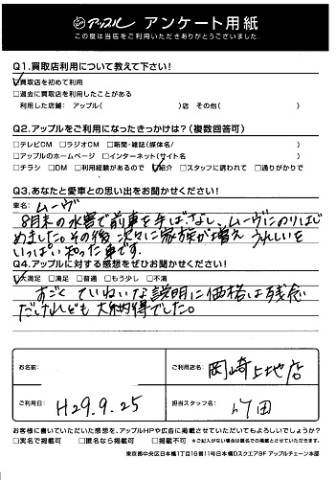 アップル アンケート用紙
この度は当店をご利用いただきありがとうございました。
Q1.買取店利用について教えて下さい！
☑買取店を初めて利用
□過去に買取店を利用したことがある
利用した店舗： アップル( )店 その他( )
Q2.アップルをご利用になったきっかけは？(複数回答可)
□テレビCM □ラジオCM □新聞・雑誌(媒体名/ )
□アップルのホームページ □インターネット(サイト名 )
□チラシ □DM □利用経験があるので ☑紹介 □スタッフに誘われて □通りがかりで
Q3.あなたと愛車との思い出をお聞かせください！
車名： ムーヴ
8月末の水害で前車を手ばなし、ムーヴにのりはじ
めました。その後 次々に家族が増え うれしいを
いっぱい知った車です。
Q4.アップルに対する感想をぜひお聞かせください！
☑大満足 □満足 □普通 □もう少し □不満
すごく ていねいな説明に価格は残念
だけれども 大納得でした。
お名前:
ご利用店名: 岡崎上地店
ご利用日: H29.9.25
担当スタッフ名:
お客様に書いていただいた感想を、アップルHPや広告に掲載させていただいてもよろしいでしょうか？
□実名で掲載可 □匿名なら掲載可 □掲載不可 ※ご記入がない場合は匿名での掲載とさせていただきます。
東京都中央区日本橋1丁目16番11号日本橋DスクエアBF アップルチェーン本部